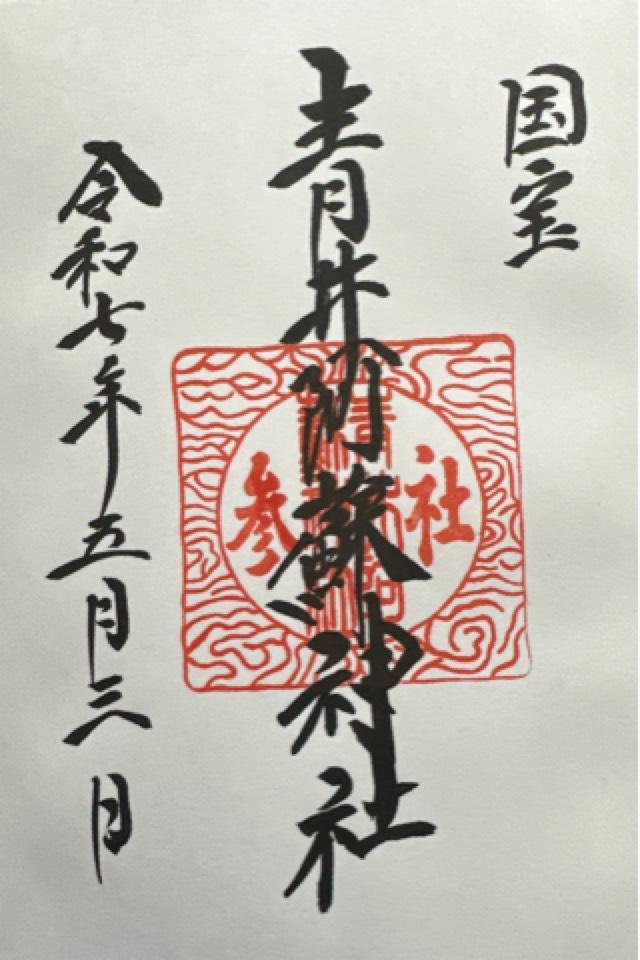 国宝
青井阿蘇神社
社参
令和七年五月三日